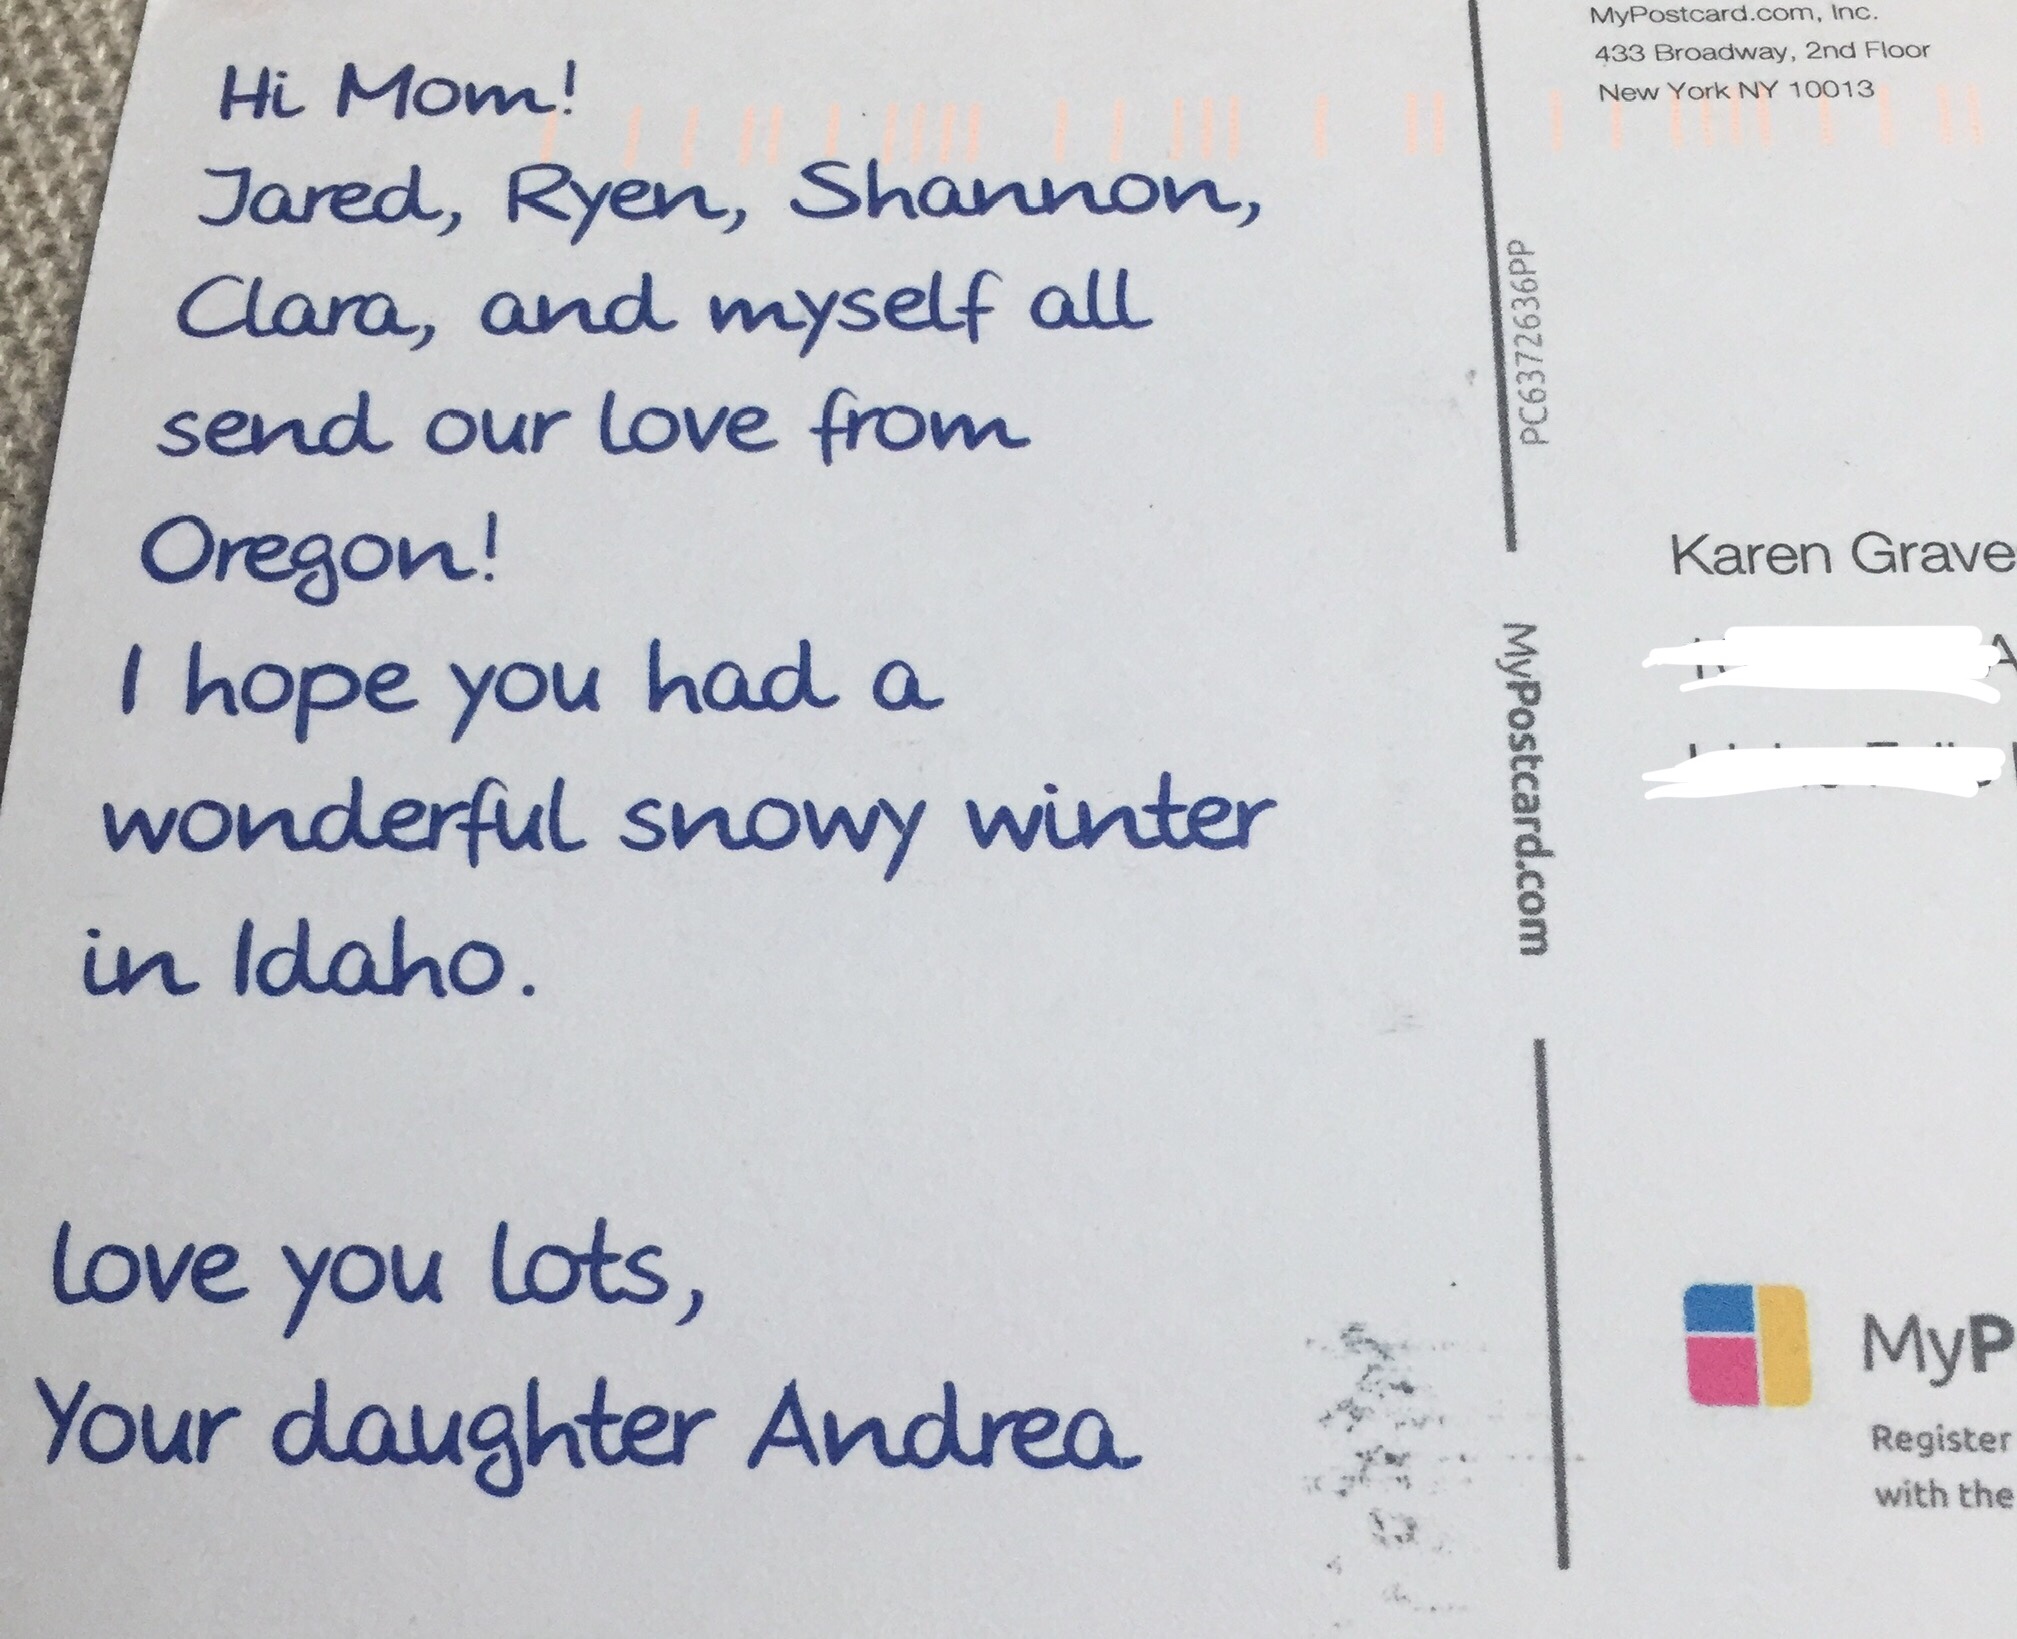 Hi Mom!
Jared, Ryen, Shannon,
Clara, and myself all
send our love from
Oregon!
I hope you had a
wonderful snowy winter
in Idaho.
love you lots,
Your daughter Andrea
PC6372636PP
MyPostcard.com
MyPostcard.com, Inc.
433 Broadway, 2nd Floor
New York NY 10013
Karen Grave
MyP
Register
with the